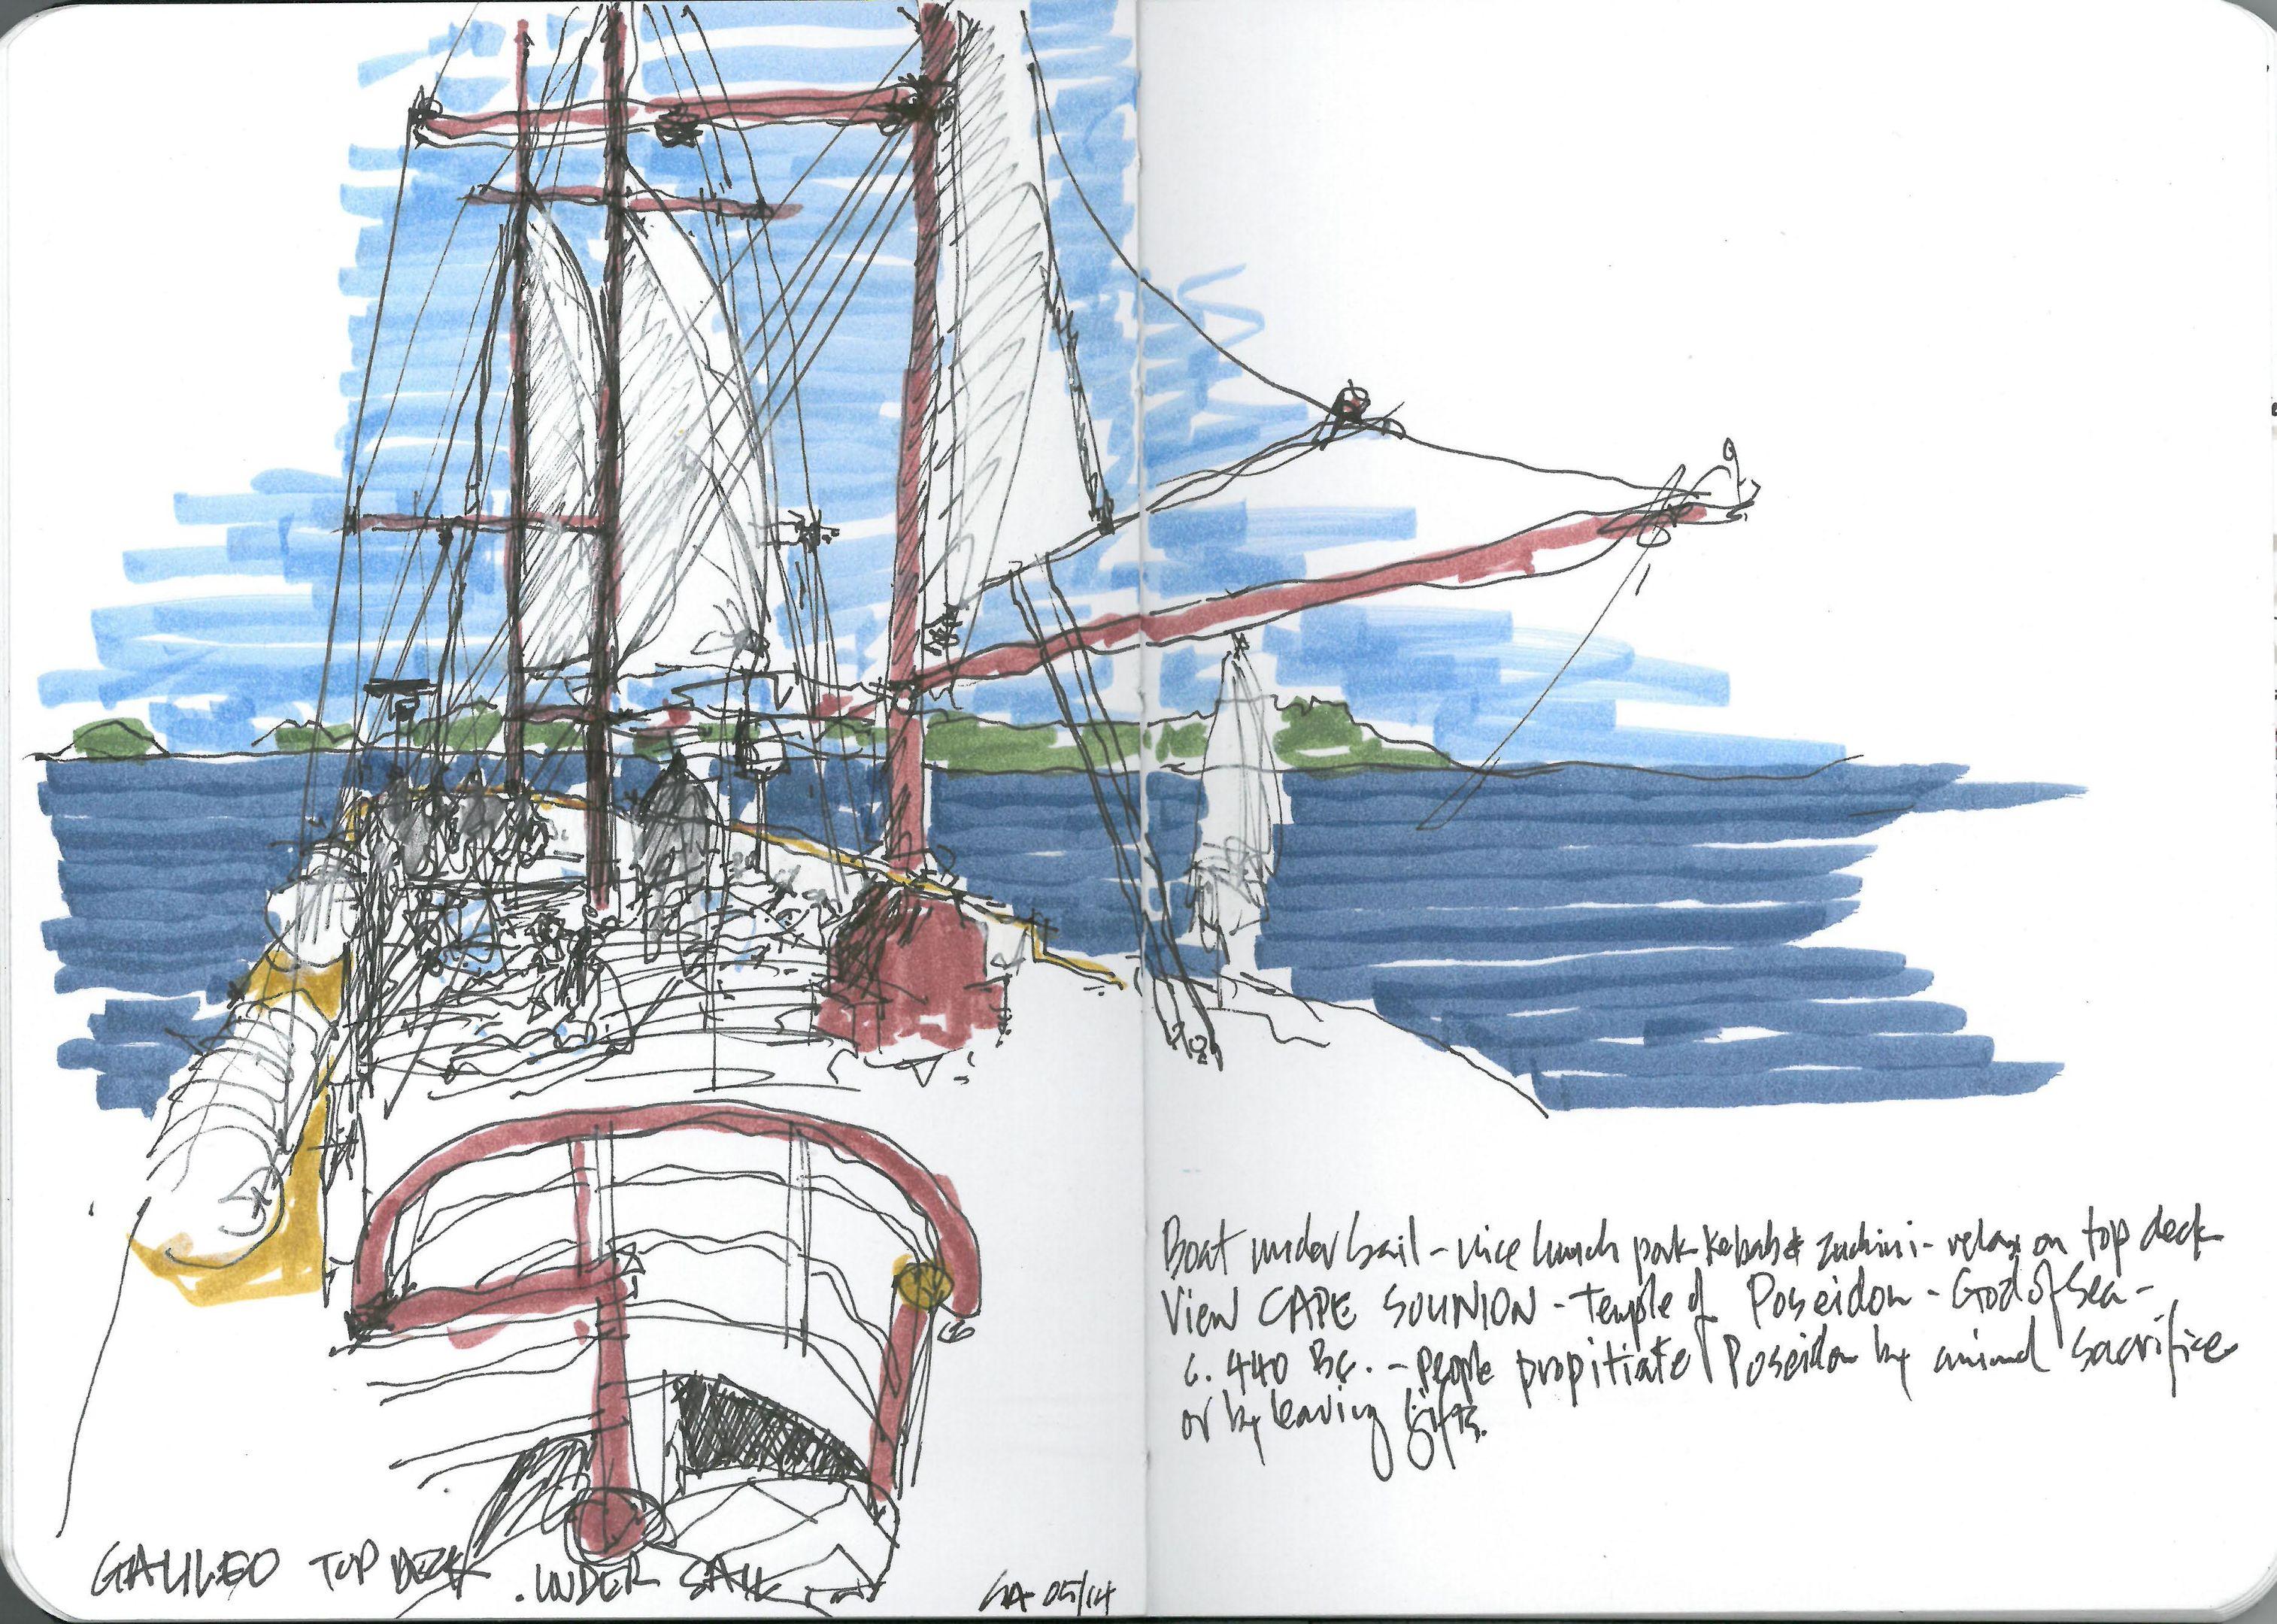 Boat under sail - nice lunch pork kebab & zuchini - relax on top deck
View CAPE SOUNION - Temple of Poseidon - God of Sea -
c. 440 BC. - People propitiate Poseidon by animal sacrifice
or by leaving gifts.
GALILEO TOP DECK . UNDER SAIL
05/14